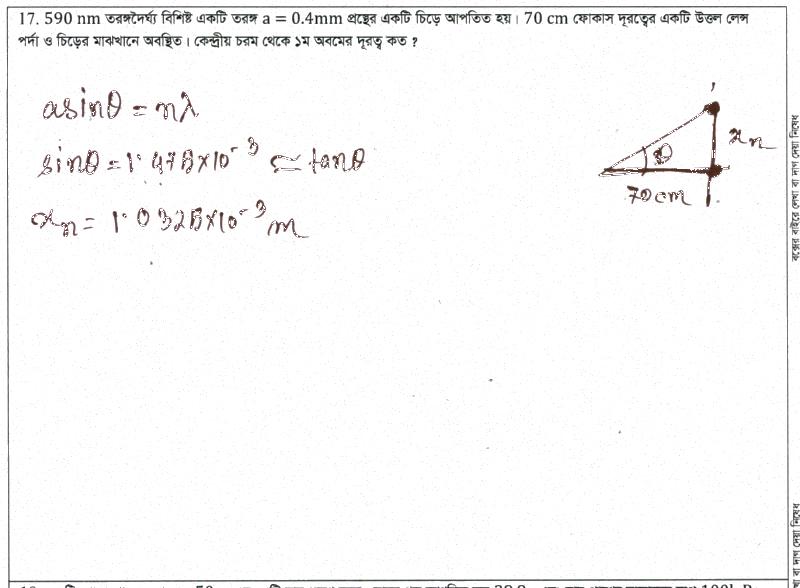 17. 590 nm তরঙ্গদৈর্ঘ্য বিশিষ্ট একটি তরঙ্গ a = 0.4mm প্রস্থের একটি চিড়ে আপতিত হয়। 70 cm ফোকাস দূরত্বের একটি উত্তল লেন্স
পর্দা ও চিড়ের মাঝখানে অবস্থিত। কেন্দ্রীয় চরম থেকে ১ম অবমের দূরত্ব কত ?
a sinθ = nλ
sinθ = 1.475×10⁻³ ≃ tanθ
xₙ = 1.0325×10⁻³ m
θ
xₙ
70cm
বক্সের বাইরে লেখা বা দাগ দেয়া নিষেধ
বা দাগ দেয়া নিষেধ